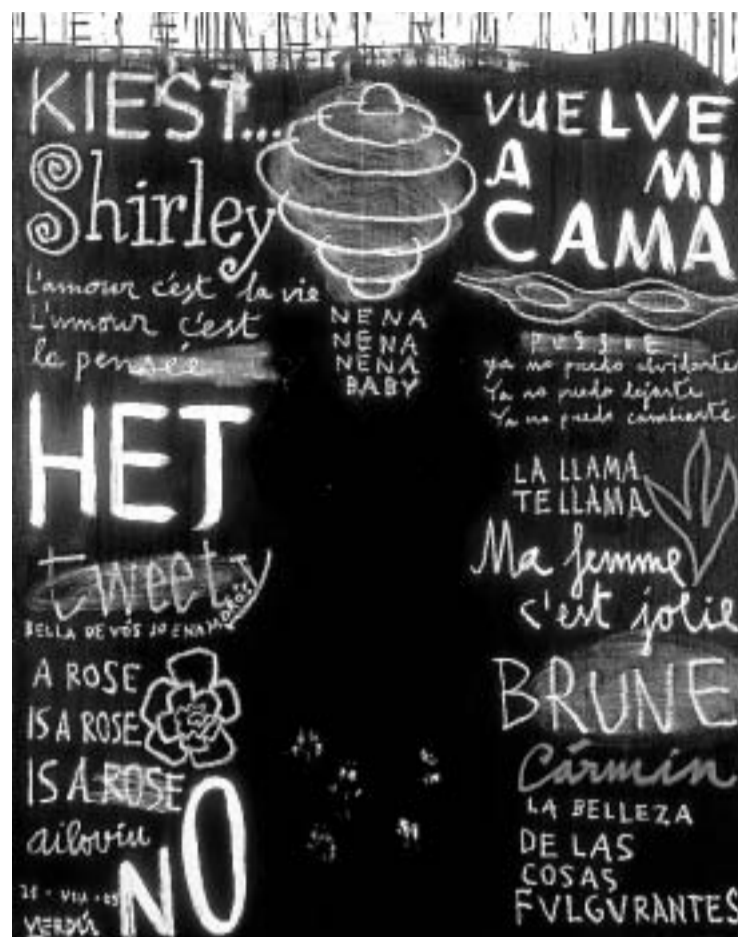 KIEST...
Shirley
L'amour c'est la vie
L'umour c'est
la pensée
HET
tweety
BELLA DE VÓS SO ENAMORÓS
A ROSE
IS A ROSE
IS A ROSE
ailoviu
NO
VERDÚ
NENA
NENA
NENA
BABY
VUELVE
A MI
CAMA
PUSSIE
ya no puedo olvidarte
Ya no puedo dejarte
Ya no puedo cambiarte
LA LLAMA
TE LLAMA
Ma femme
c'est jolie
BRUNE
Cármin
LA BELLEZA
DE LAS
COSAS
FVLGVRANTES